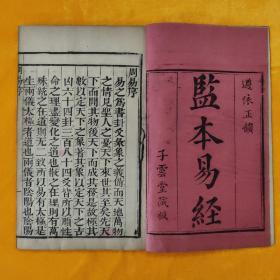 遵依正韻
監本易經
子雲堂藏板
周易序
易之爲書卦爻彖象之義備而天地萬物
之情見聖人之憂天下來世其至矣先天
下而開其物後天下而成其務是故極其
數以定天下之象著其象以定天下之吉
凶六十四卦三百八十四爻皆所以順性
命之理盡變化之道也散之在理則有萬
殊統之在道則无二致所以易有太極是
生兩儀太極者道也兩儀者陰陽也陰陽
周易序